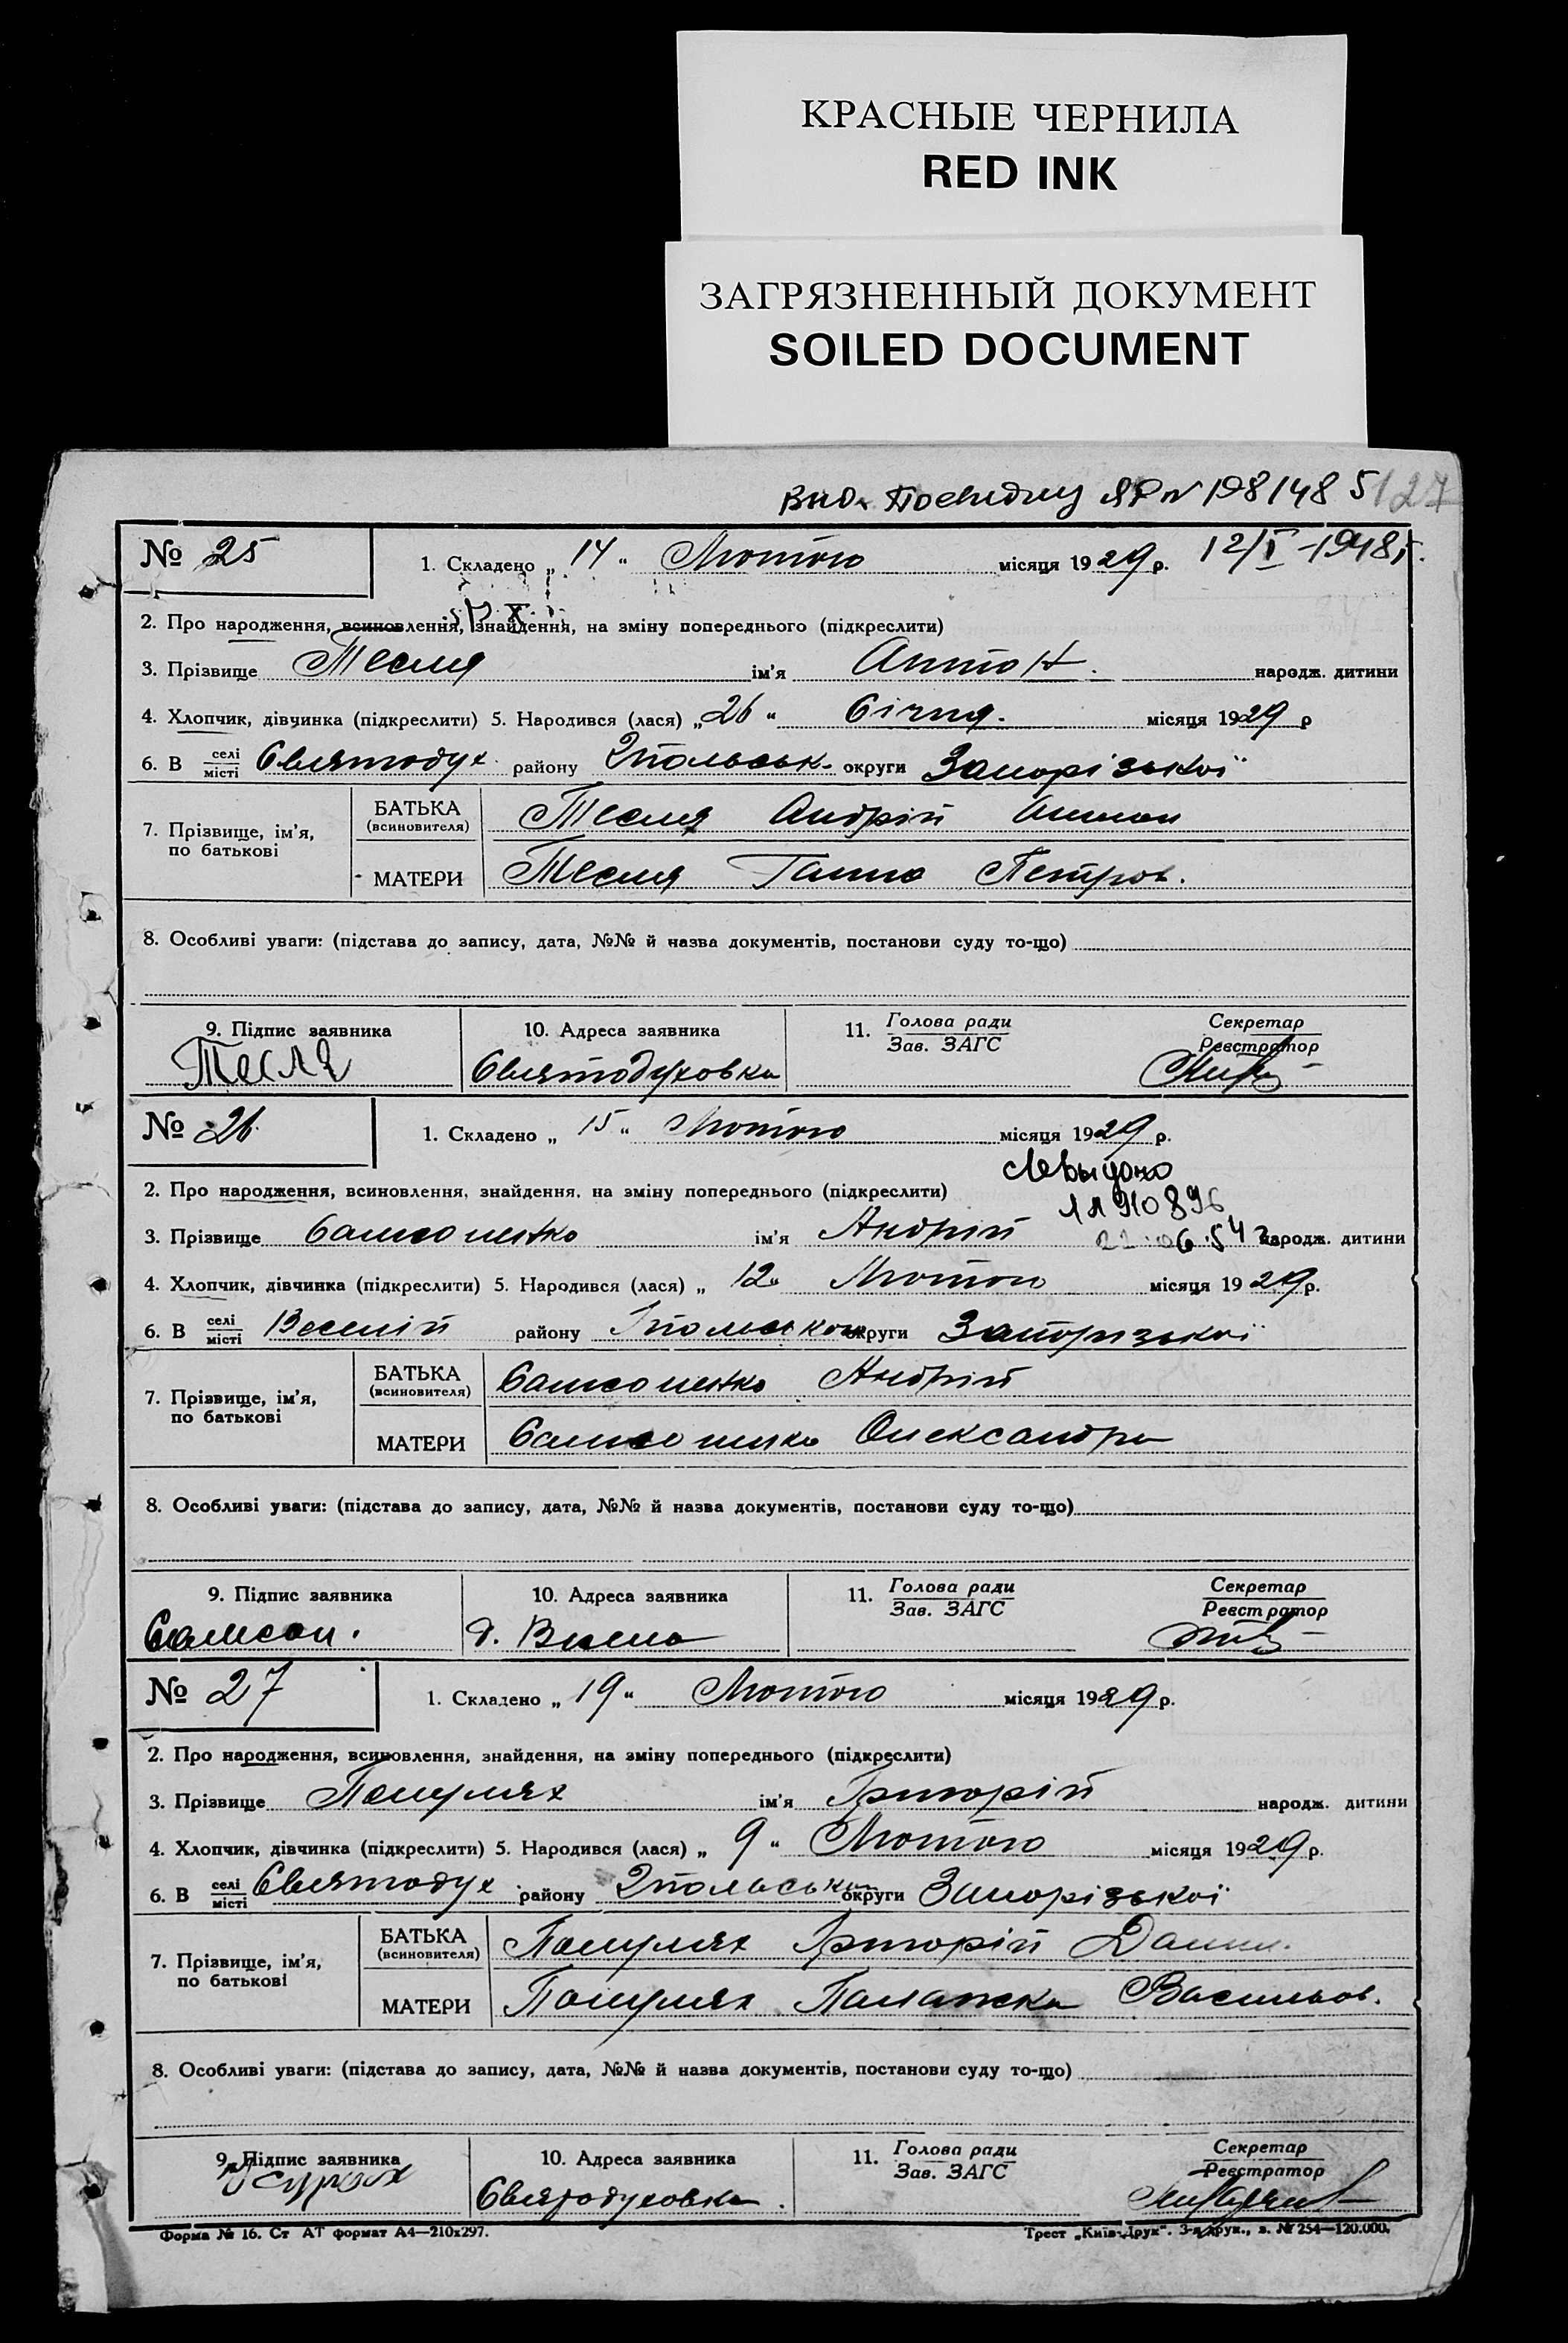 КРАСНЫЕ ЧЕРНИЛА
RED INK
ЗАГРЯЗНЕННЫЙ ДОКУМЕНТ
SOILED DOCUMENT
198148 5 127
№ 25 1. Складено „ 14 “ Лютого місяця 1929 р. 12/I-1948
2. Про народження, всиновлення, знайдення, на зміну попереднього (підкреслити)
3. Прізвище Тесля ім’я Антон народж. дитини
4. Хлопчик, дівчинка (підкреслити) 5. Народився (лася) „26“ Січня. місяця 1929 р
6. В селі/місті Святодух району округи Запорізької
7. Прізвище, ім’я, по батькові
БАТЬКА (всиновителя) Тесля Андрій
МАТЕРИ Тесля Ганна Петров.
8. Особливі уваги: (підстава до запису, дата, №№ й назва документів, постанови суду то-що)
9. Підпис заявника 10. Адреса заявника 11. Голова ради/Зав. ЗАГС Секретар/Реєстратор
Тесля Святодуховка
№ 26. 1. Складено „ 15 “ Лютого місяця 1929 р.
2. Про народження, всиновлення, знайдення, на зміну попереднього (підкреслити)
910896
3. Прізвище Самсоненко ім’я Андрій народж. дитини
4. Хлопчик, дівчинка (підкреслити) 5. Народився (лася) „ 12“ Лютого місяця 1929 р.
6. В селі/місті Веселій району округи Запорізької
7. Прізвище, ім’я, по батькові
БАТЬКА (всиновителя) Самсоненко Андрій
МАТЕРИ Самсоненко Олександра
8. Особливі уваги: (підстава до запису, дата, №№ й назва документів, постанови суду то-що)
9. Підпис заявника 10. Адреса заявника 11. Голова ради/Зав. ЗАГС Секретар/Реєстратор
Самсон.
№ 27 1. Складено „ 19 “ Лютого місяця 1929 р.
2. Про народження, всиновлення, знайдення, на зміну попереднього (підкреслити)
3. Прізвище ім’я Григорій народж. дитини
4. Хлопчик, дівчинка (підкреслити) 5. Народився (лася) „ 9 “ Лютого місяця 1929 р.
6. В селі/місті Святодух району округи Запорізької
7. Прізвище, ім’я, по батькові
БАТЬКА (всиновителя) Григорій
МАТЕРИ Палажка Васильов.
8. Особливі уваги: (підстава до запису, дата, №№ й назва документів, постанови суду то-що)
9. Підпис заявника 10. Адреса заявника 11. Голова ради/Зав. ЗАГС Секретар/Реєстратор
Святодуховка.
Форма № 16. Ст АТ формат А4—210х297. Трест „Київ-Друк“. 3-я друк., з. № 254—120.000.